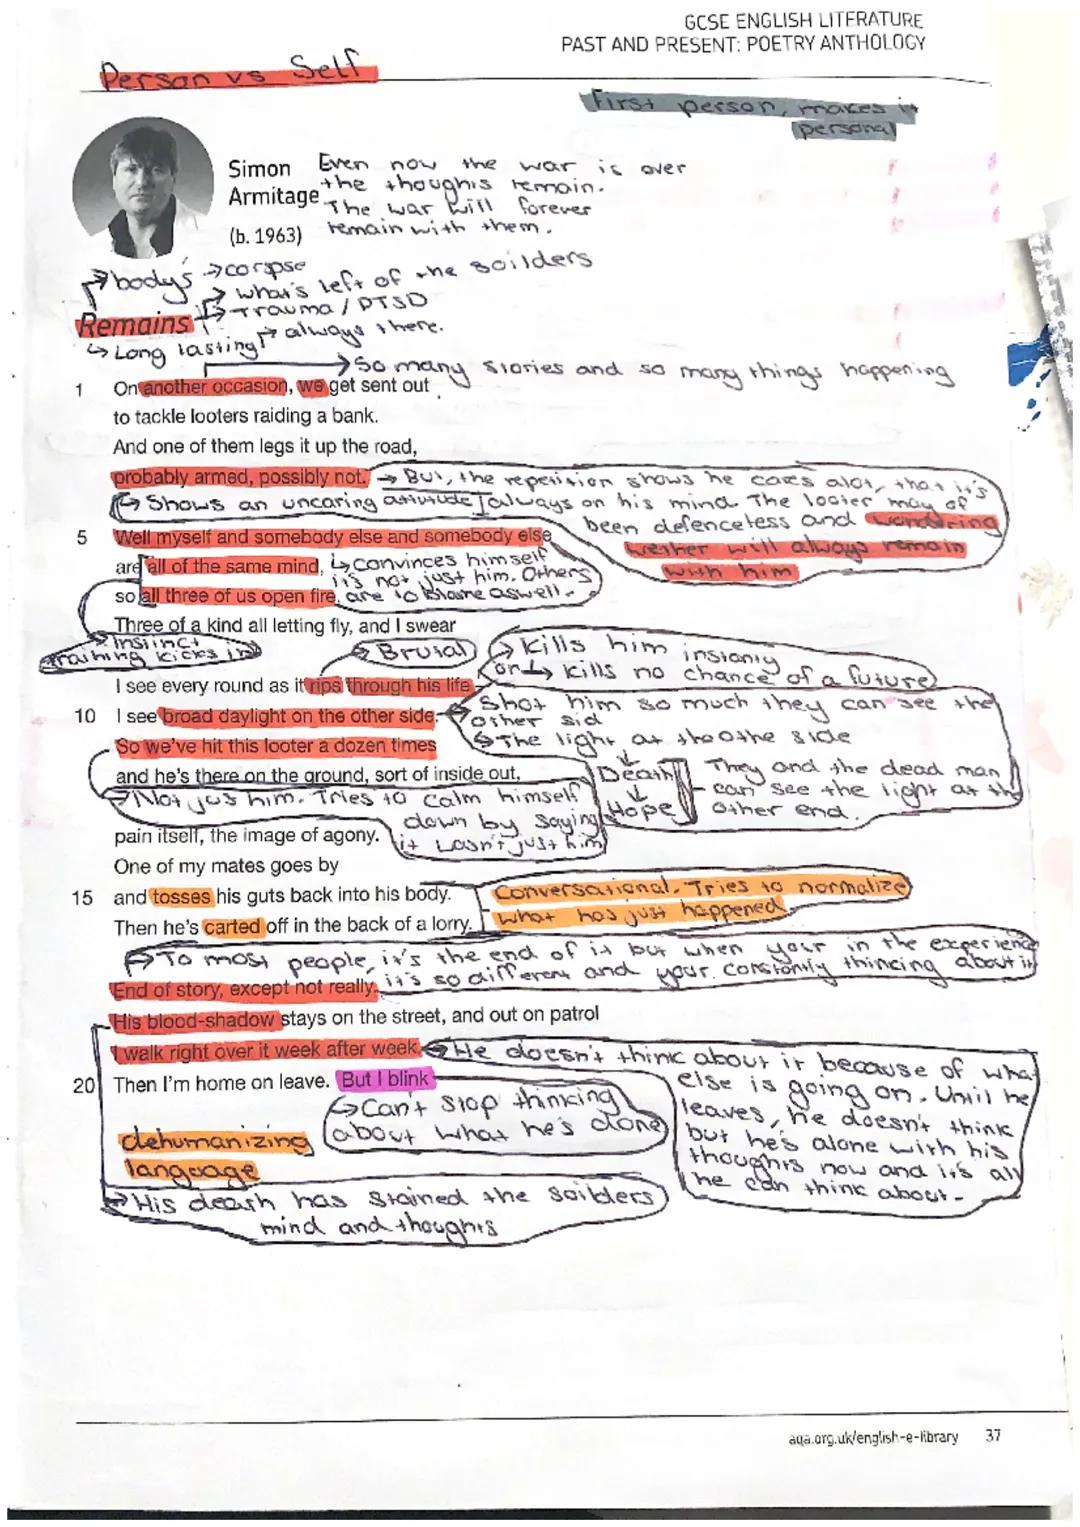 GCSE ENGLISH LITERATURE
PAST AND PRESENT: POETRY ANTHOLOGY
Person vs Self
First person, makes it
personal
Simon
Armitage
(b. 1963)
Even now the war is over
the thoughts remain.
The war will forever
remain with them.
body's → corpse
→ what's left of the soilders
→ Trauma / PTSD
Remains
→ always there.
↳ Long lasting
→ So many stories and so many things happening
1 On another occasion, we get sent out
to tackle looters raiding a bank.
And one of them legs it up the road,
probably armed, possibly not.
→ But, the repetition shows he cares alot, that it's
always on his mind. The looter may of
been defenceless and wondering
wether will always remain
with him
↳ Shows an uncaring attutude
5 Well myself and somebody else and somebody else
are all of the same mind,
so all three of us open fire,
↳ Convinces himself
it's not just him. Others
are to blame aswell.
Three of a kind all letting fly, and I swear
→ Insinct
training kicks in
Brutal
→ kills him instanly
or ↳ kills no chance of a future
I see every round as it rips through his life
10 I see broad daylight on the other side.
Shot him so much they can see the
other sid
↳ The light at the othe side
So we've hit this looter a dozen times
and he's there on the ground, sort of inside out,
Death
↓
Hope
They and the dead man
can see the light at the
other end.
→ Not jus him. Tries to calm himself
down by saying
it wasn't just him
pain itself, the image of agony.
One of my mates goes by
15 and tosses his guts back into his body.
Then he's carted off in the back of a lorry.
Conversational. Tries to normalize
what has just happened
→ To most people, it's the end of it but when your in the experience
it's so different and your constantly thincing about it
End of story, except not really.
His blood-shadow stays on the street, and out on patrol
I walk right over it week after week.
20 Then I'm home on leave. But I blink
→ He doesn't think about it because of what
else is going on. Until he
leaves, he doesn't think
but he's alone with his
thoughts now and it's all
he can think about.
↳ Can't stop thinking
about what he's done
dehumanizing
language
→ His death has stained the soilders
mind and thoughts
aqa.org.uk/english-e-library 37